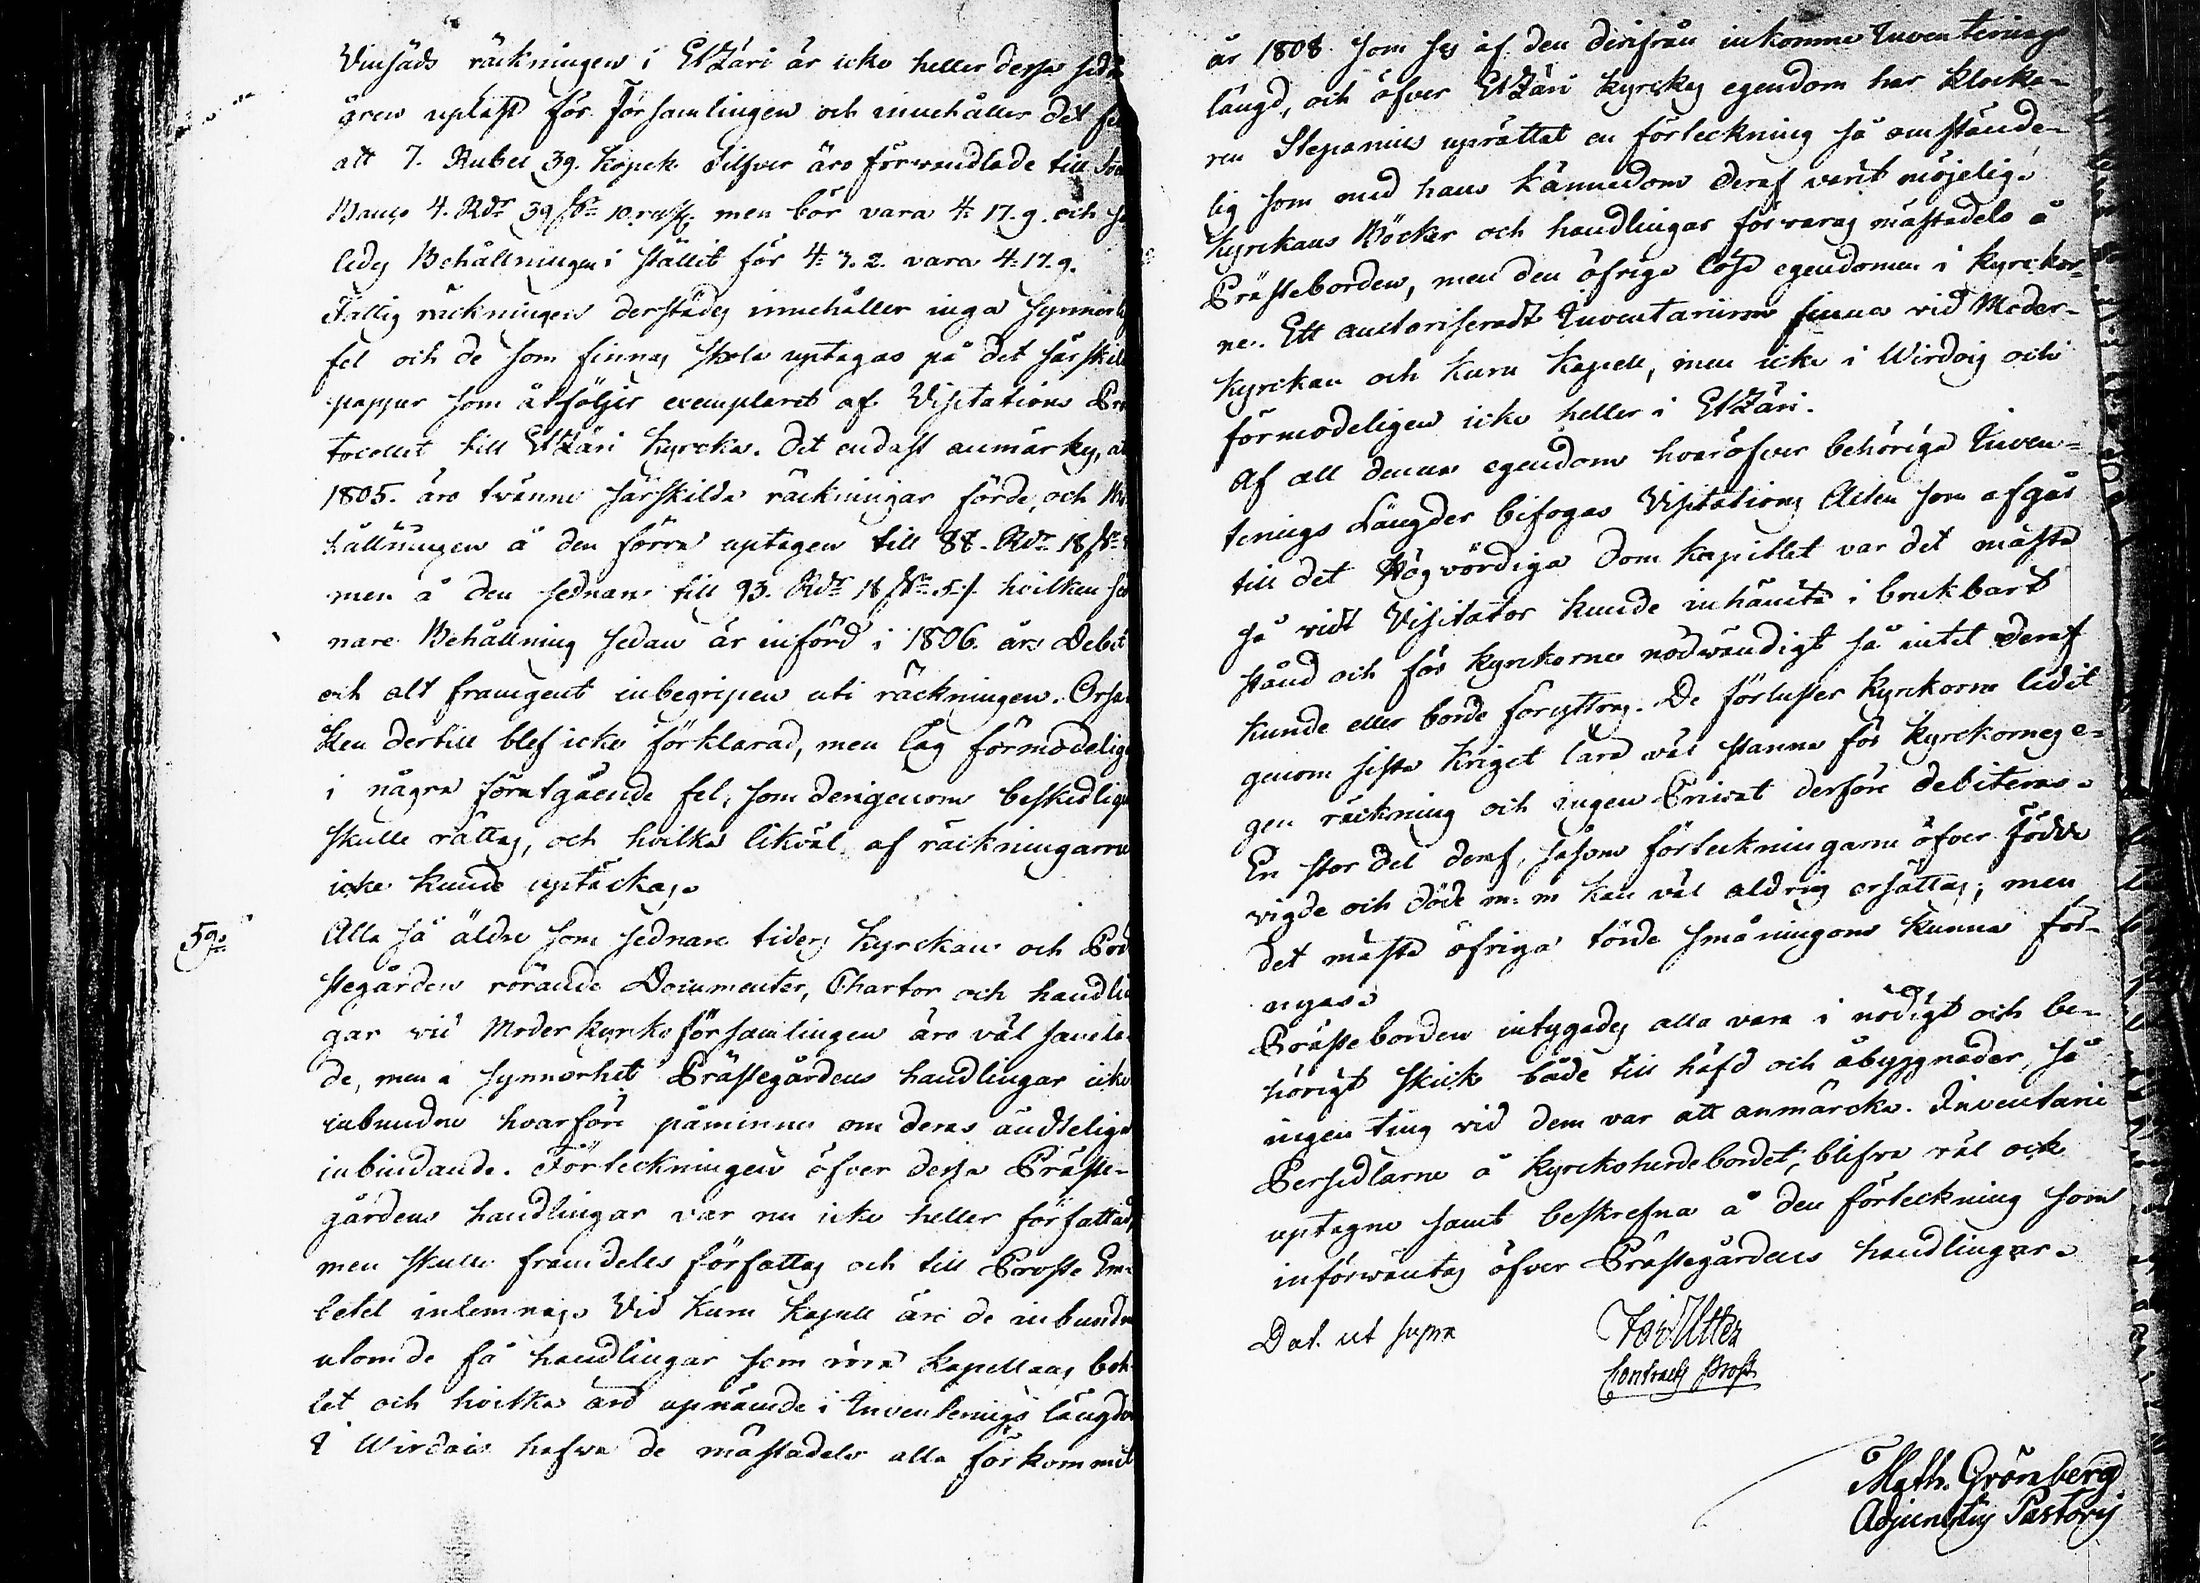 Vinsäds räckningen i Etzäri är icke heller dessa sedn
åren upläst för Församlingen och innehåller det fel
att 7. Rubel 39. Kopek Silfver äro förwandlade till
Banco 4. Rdr 39 sk: 10. men bör vara 4: 17. 9. och så
ledes Behållningen i stället för 4: 7. 2. vara 4: 17. 9.
Fattig räckningen derstädes innehåller inga synnerlig
fel och de som finnas skola uptagas på det särskil
papper som åtföljer exemplaret af Visitations Pro
tocollet till Etzäri Kyrcka. Det endast anmärkes, at
1805. äro tvänne särskilda räckningar förde, och Be
hållningen å den förra uptagen till 88. Rdr 18 sk:
men å den sednare till 93. Rdr 18 sk: 5. hvilken sed
nare Behållning sedan är införd i 1806. års Debet
och alt framgent inbegripen uti räckningen. Orsa
ken dertill blef icke förklarad, men låg förmodelig
i några föregående fel, som derigenom beskedlig
skulle rättas, och hvilka likväl af räckningarne
icke kunde uptäckas.
59:o
Alla så äldre som sednare tiders Kyrckan och Prä
stegården rörande Documenter, Chartor och handlin
gar vid Moderkyrko församlingen äro väl samla
de, men i synnerhet Prästegårdens handlingar icke
inbundne hvarföre påminnes om deras ändtelige
inbindande. Förteckningen öfver dessa Präste-
gårdens handlingar var nu icke heller författad,
men skulle framdeles författas och till Proste Em-
betet inlemnas. Vid Kuru Kapell äro de inbundne
utom de få handlingar som röra Kapellans bok
let och hvilka äro upnämde i Inventerings längden
I Wirdois hafva de mästadels alla förkommit
år 1808. som ses af den derifrån inkomne Inventerings
längd, och öfver Etzäri Kyrckas egendom har Klocka-
ren Stepanius uprättat en förteckning så omstände-
lig som med hans kännedom deraf varit möjelig.
Kyrckans Böcker och handlingar förvaras mästadels å
Prästeborden, men den öfriga lösa egendomen i Kyrckor-
ne. Ett auctoriseradt Inventarium finnes vid Moder-
kyrckan och Kuru Kapell, men icke i Wirdois och
förmodeligen icke heller i Etzäri.
Af all denna egendom hvaröfver behöriga Inven-
terings Längder bifogas Visitations Acten som afgår
till det Högvördiga Dom Kapitlet var det mästa
så vidt Visitator kunde inhämta i brukbart
stånd och för Kyrckorne nödvändigt så intet deraf
kunde eller borde föryttras. De förluster Kyrckorne lidit
genom sista kriget lära väl stanna för Kyrckornes e-
gen räckning och ingen Privat derföre debiteras.
En stor del deraf, såsom förteckningarne öfver Födde
vigde och döde m: m kan väl aldrig ersättas; men
det mästa öfriga törde småningom kunna för-
nyas.
Prästeborden intygades alla vara i nödigt och be-
hörigt skick både till häfd och åbyggnader, så
ingen ting vid dem var att anmärcka. Inventarii
Persedlarne å Kyrckoherdebordet, blifva väl ock
uptagne samt beskrefna å den förteckning som
införwäntas öfver Prästegårdens handlingar.
Dat. ut supra
Contracts Prost
Math. Grönberg
Adjunctus Pastoris